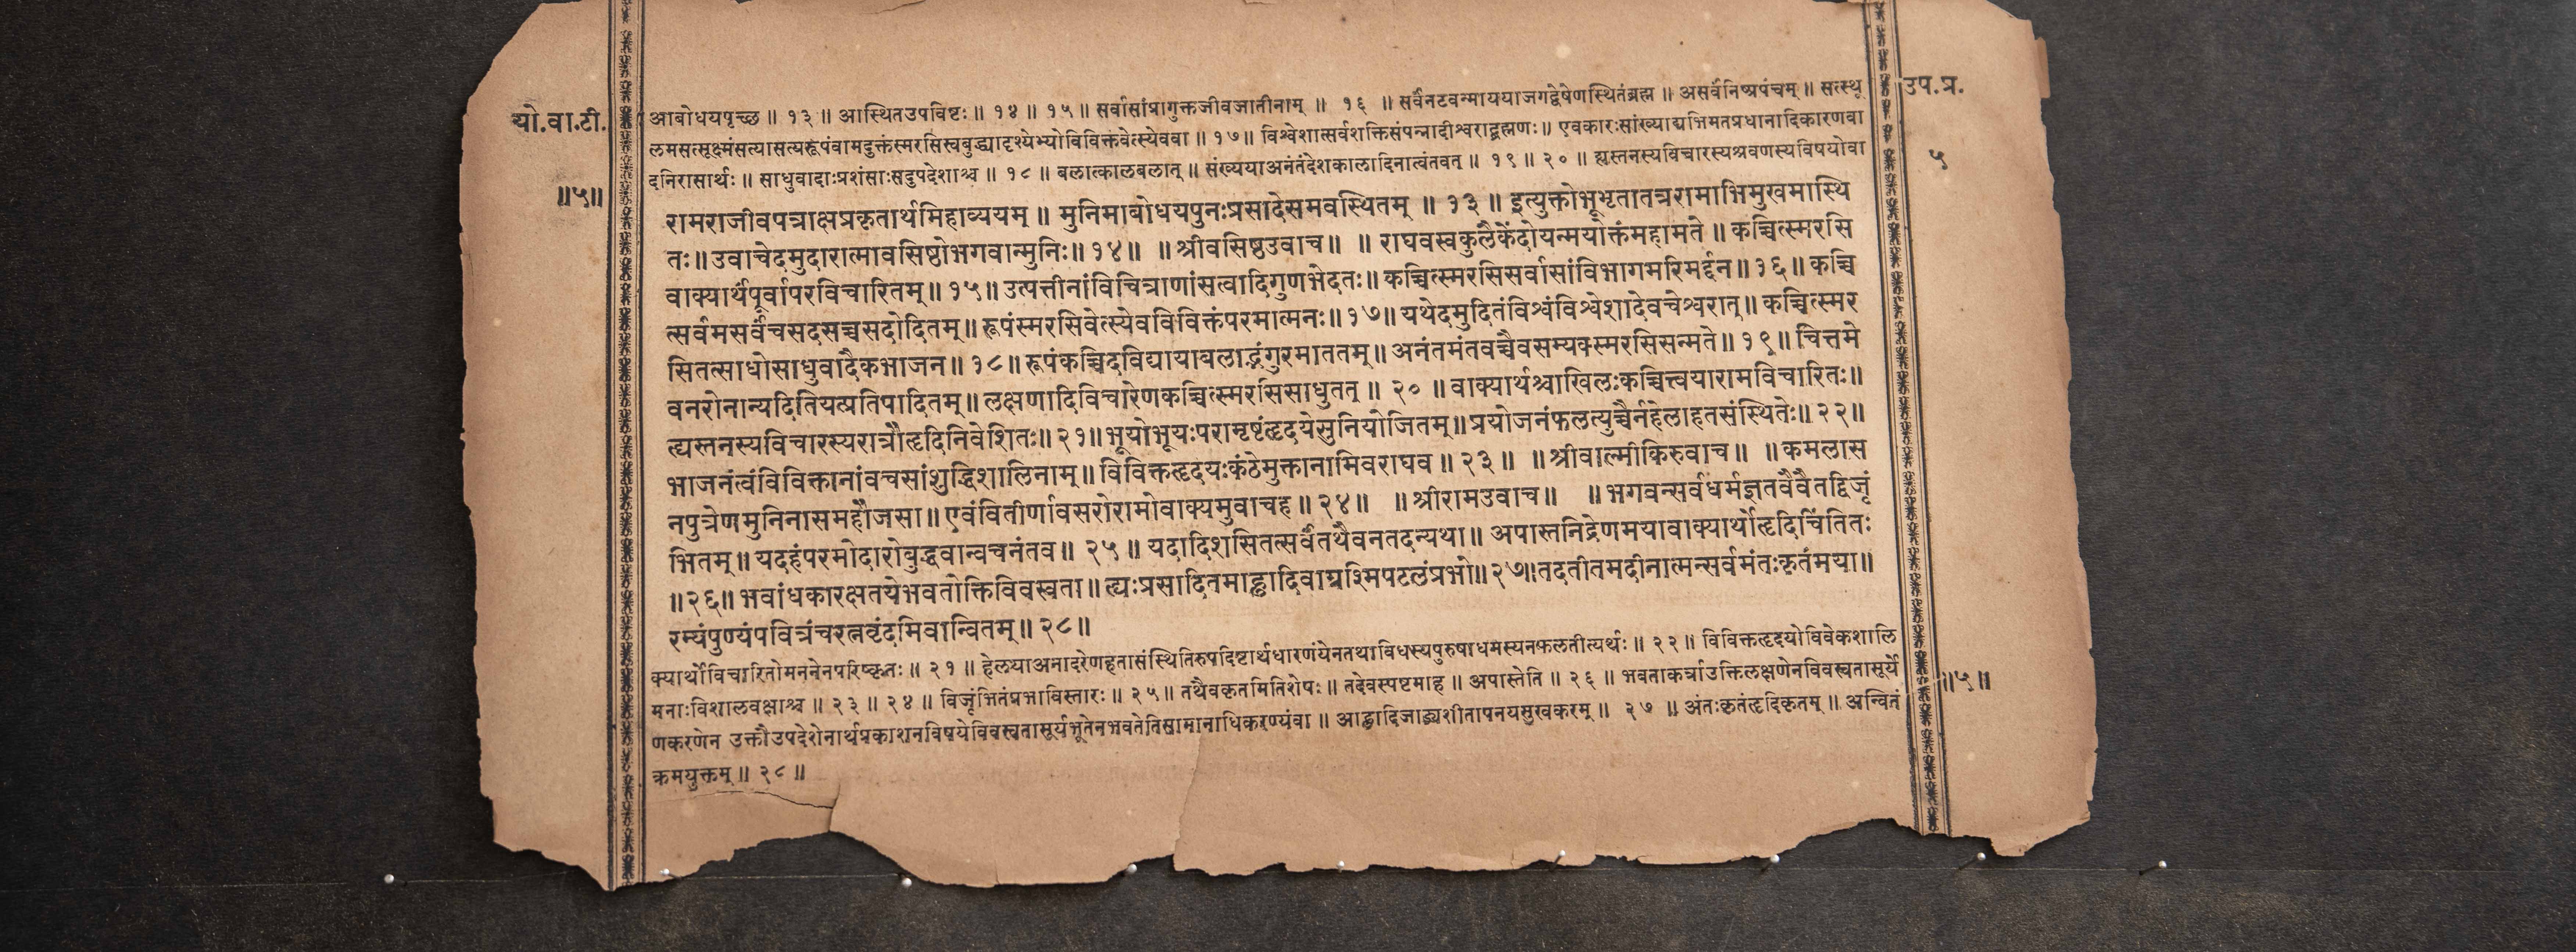 यो.वा.टी.
॥५॥
उप.प्र.
५
आबोधयपृच्छ ॥ १३ ॥ आस्थितउपविष्टः ॥ १४ ॥ १५ ॥ सर्वासांप्रागुक्तजीवजातीनाम् ॥ १६ ॥ सर्वंनटवन्माययाजगद्वेषेणस्थितंब्रह्म ॥ असर्वंनिष्प्रपंचम् ॥ सत्स्थू
लमसत्सूक्ष्मंसत्यासत्यरूपंवामदुक्तंस्मरसिस्वबुद्ध्यादृश्येभ्योविविक्तंवेत्स्येववा ॥ १७ ॥ विश्वेशात्सर्वशक्तिसंपन्नादीश्वराद्ब्रह्मणः ॥ एवकारःसांख्याद्यभिमतप्रधानादिकारणवा
दनिरासार्थः ॥ साधुवादाःप्रशंसाःसदुपदेशाश्च ॥ १८ ॥ बलात्कालबलात् ॥ संख्ययाअनंतंदेशकालादिनात्वंतवत् ॥ १९ ॥ २० ॥ ह्यस्तनस्यविचारस्यश्रवणस्यविषयोवा
रामराजीवपत्राक्षप्रकृतार्थमिहाव्ययम् ॥ मुनिमाबोधयपुनःप्रसादेसमवस्थितम् ॥ १३ ॥ इत्युक्तोभूभृतातत्ररामाभिमुखमास्थि
तः ॥ उवाचेदमुदारात्मावसिष्ठोभगवान्मुनिः ॥ १४ ॥ ॥ श्रीवसिष्ठउवाच ॥ ॥ राघवस्वकुलैकेंदोयन्मयोक्तंमहामते ॥ कच्चित्स्मरसि
वाक्यार्थंपूर्वापरविचारितम् ॥ १५ ॥ उत्पत्तीनांविचित्राणांसत्वादिगुणभेदतः ॥ कच्चित्स्मरसिसर्वासांविभागमरिमर्द्दन ॥ १६ ॥ कच्चि
त्सर्वमसर्वंचसदसच्चसदोदितम् ॥ रूपंस्मरसिवेत्स्येवविविक्तंपरमात्मनः ॥ १७ ॥ यथेदमुदितंविश्वंविश्वेशादेवचेश्वरात् ॥ कच्चित्स्मर
सितत्साधोसाधुवादैकभाजन ॥ १८ ॥ रूपंकच्चिदविद्यायाबलाद्भंगुरमाततम् ॥ अनंतमंतवच्चैवसम्यक्स्मरसिसन्मते ॥ १९ ॥ चित्तमे
वनरोनान्यदितियत्प्रतिपादितम् ॥ लक्षणादिविचारेणकच्चित्स्मरसिसाधुतत् ॥ २० ॥ वाक्यार्थश्चाखिलःकच्चित्त्वयारामविचारितः ॥
ह्यस्तनस्यविचारस्यरात्रौहृदिनिवेशितः ॥ २१ ॥ भूयोभूयःपरामृष्टंहृदयेसुनियोजितम् ॥ प्रयोजनंफलत्युच्चैर्नहेलाहतसंस्थितेः ॥ २२ ॥
भाजनंत्वंविविक्तानांवचसांशुद्धिशालिनाम् ॥ विविक्तहृदयःकंठेमुक्तानामिवराघव ॥ २३ ॥ ॥ श्रीवाल्मीकिरुवाच ॥ ॥ कमलास
नपुत्रेणमुनिनासमहौजसा ॥ एवंवितीर्णावसरोरामोवाक्यमुवाचह ॥ २४ ॥ ॥ श्रीरामउवाच ॥ ॥ भगवन्सर्वधर्मज्ञतवैवैतद्विजृं
भितम् ॥ यदहंपरमोदारोबुद्धवान्वचनंतव ॥ २५ ॥ यदादिशसितत्सर्वंतथैवनतदन्यथा ॥ अपास्तनिद्रेणमयावाक्यार्थोहृदिचिंतितः
॥ २६ ॥ भवांधकारक्षतयेभवतोक्तिविवस्वता ॥ ह्यःप्रसादितमाह्लादिवाग्रश्मिपटलंप्रभो ॥ २७ ॥ तदतीतमदीनात्मन्सर्वमंतःकृतंमया ॥
रम्यंपुण्यंपवित्रंचरत्नवृंदमिवान्वितम् ॥ २८ ॥
क्यार्थोविचारितोमननेनपरिष्कृतः ॥ २१ ॥ हेलयाअनादरेणहृतासंस्थितिरुपदिष्टार्थधारणंयेनतथाविधस्यपुरुषाधमस्यनफलतीत्यर्थः ॥ २२ ॥ विविक्तहृदयोविवेकशालि
मनाःविशालवक्षाश्च ॥ २३ ॥ २४ ॥ विजृंभितंप्रभाविस्तारः ॥ २५ ॥ तथैवकृतमितिशेषः ॥ तदेवस्पष्टमाह ॥ अपास्तेति ॥ २६ ॥ भवताकर्त्राउक्तिलक्षणेनविवस्वतासूर्ये
णकरणेन उक्तौउपदेशेनार्थप्रकाशनविषयेविवस्वतासूर्यभूतेनभवतेतिसामानाधिकरण्यंवा ॥ आह्लादिजाड्यशीतापनयसुखकरम् ॥ २७ ॥ अंतःकृतंहृदिकृतम् ॥ अन्वितं
क्रमयुक्तम् ॥ २८ ॥
॥५॥